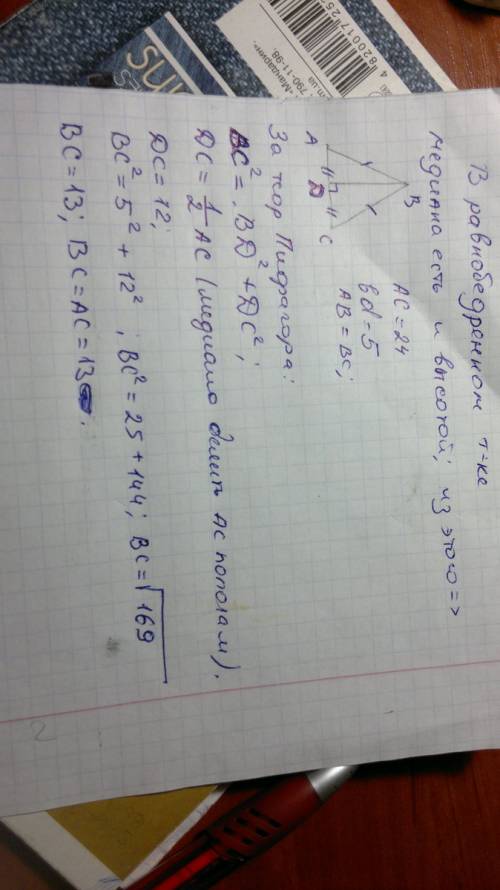 В равнобедренном т-ке
медиана есть и высотой; из этого =>
B
A
D
C
AC = 24
bd = 5
AB = BC;
За теор Пифагора:
BC² = BD² + DC²;
DC = 1/2 AC (медиана делить AC пополам).
DC = 12;
BC² = 5² + 12²; BC² = 25 + 144; BC = √169
BC = 13; BC = AC = 13.
2
4 820017 25
790-11-98,
«Мандарин».